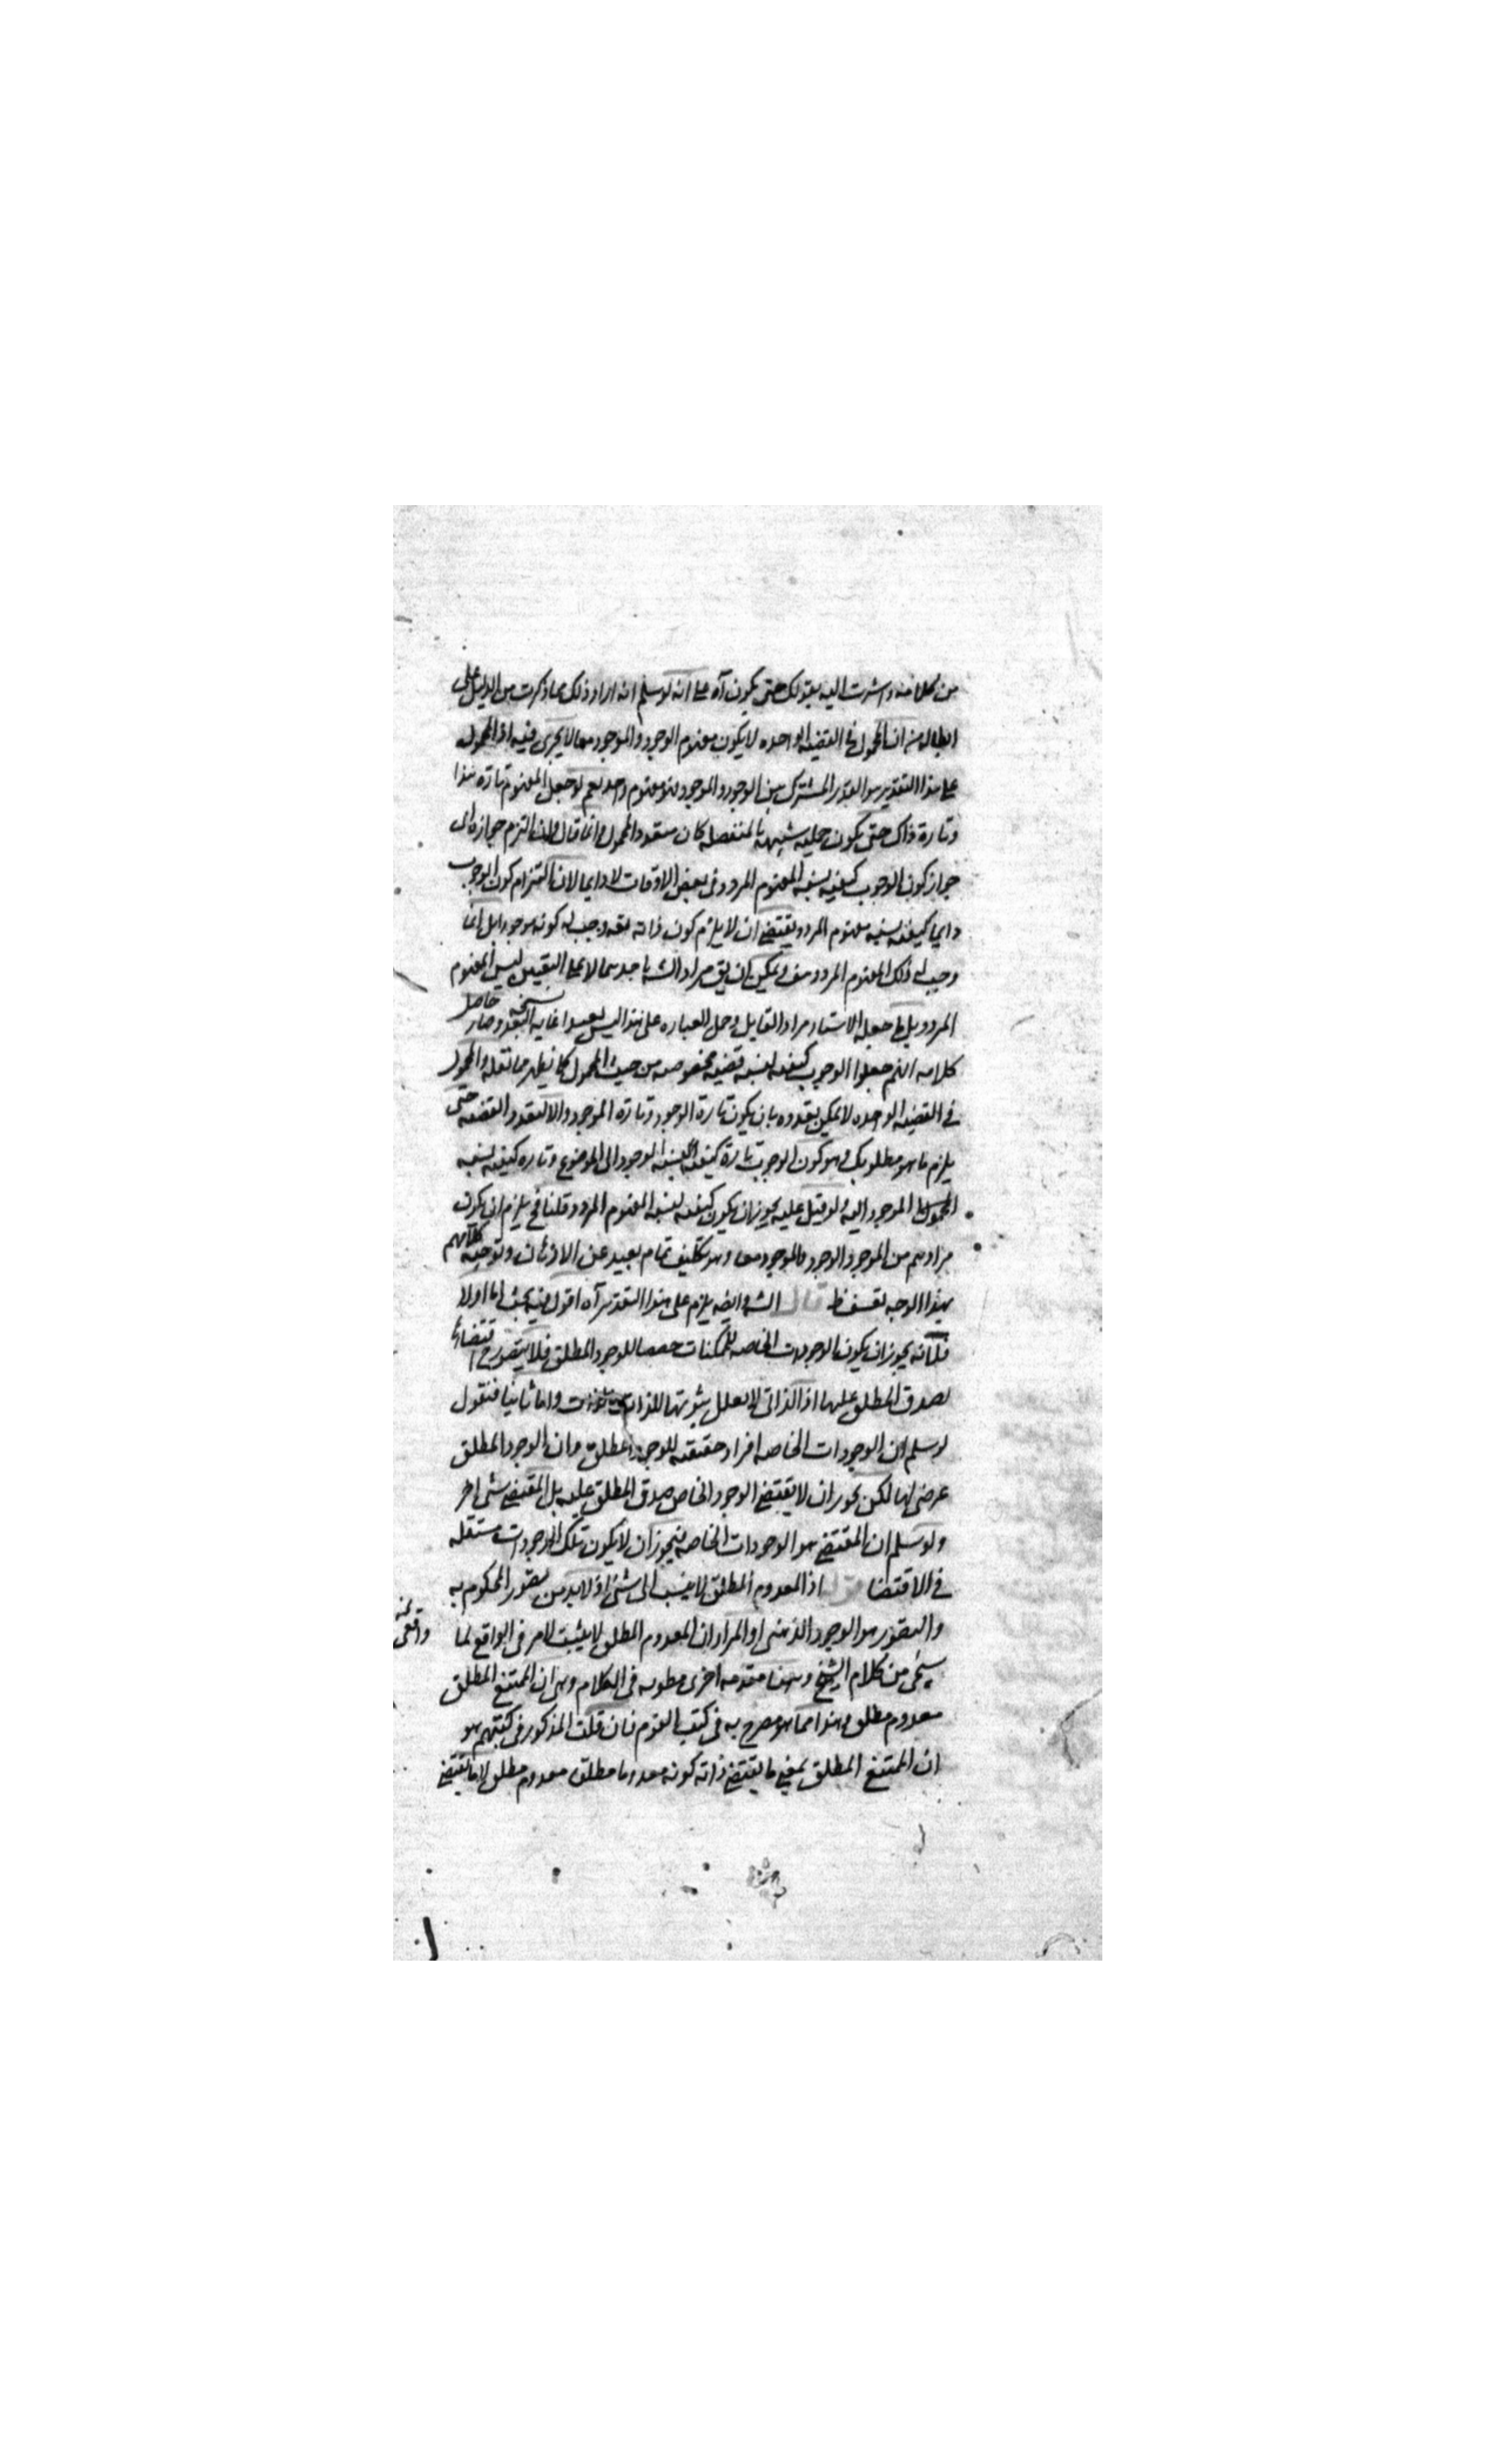 من كلامه واشرت اليه بقولك حتى يكون آه على انه لو سلم انه اراد ذلك مما ذكرت من الدليل على
ابطاله من ان المحمول في القضية الواحده لا يكون مفهوم الوجود والموجود معا لا يجرى فيه اذ المحمول
على هذا التقدير هو القدر المشترك بين الوجود والموجود وهو مفهوم واحد نعم لو جعل المفهوم تارة هذا
وتارة ذاك حتى يكون حملية شبيهة بالمنفصلة كان متعدد المحمول وانما قال فان التزم جوازه اى
جواز كون الوجوب كيفية نسبة المفهوم المردد فى بعض الاوقات لا دايما لان التزام كون الوجوب
دايما كيفية نسبة مفهوم المردد يقتضى ان لا يلزم كون ذاته بقه وجب له كونه موجودا بل انما
وجب له ذلك المفهوم المردد هف ويمكن ان يق مراد الشه باحدهما لا على التعيين ليس المفهوم
المردد بل ما جعله الاستاد مراد القايل وحمل العباره على هذا ليس بعيدا غاية البعد وصار
نسخه حاصل
كلامه انهم جعلوا الوجوب كيفية نسبة قضية مخصوصه من حيث المحمول كما يظهر مما نقله والمحمول
في القضية الواحده لا يمكن تعدده بان يكون تارة الوجود وتارة الموجود والا لتعدد القضية حتى
يلزم ما هو مطلوبك وهو كون الوجوب تارة كيفية لنسبة الوجود الى الموضوع وتاره كيفية نسبة
المحمول الموجود اليه ولو قيل عليه يجوز ان يكون كيفية نسبة المفهوم المردد قلنا فح يلزم ان يكون
مرادهم من الموجود الوجود والموجود معا وهو تكليف تمام بعيد عن الاذهان وتوجيه كلامهم
بهذا الوجه تعسف ظ قال الشه وايضه يلزم على هذا التقدير آه اقول فيه بحث اما اولا
فلانه يجوز ان يكون الوجودات الخاصه للممكنات حصصا للوجود المطلق فلا يتصور ح اقتضاؤها
لصدق المطلق عليها اذ الذاتى لا يعلل ثبوتها للذات واما ثانيا فنقول
لو سلم ان الوجودات الخاصه افراد حقيقة للوجود المطلق وان الوجود المطلق
عرضى لها لكن يجوز ان لا يقتضى الوجود الخاص صدق المطلق عليه بل المقتضى شى اخر
ولو سلم ان المقتضى هو الوجودات الخاصه فيجوز ان لا يكون تلك الوجودات مستقله
في الاقتضا قوله اذ المعدوم المطلق لا ينسب الى شى اذ لا بد من تصور المحكوم به
والتصور هو الوجود الذهنى او المراد ان المعدوم المطلق لا يثبت لامر فى الواقع لما
سيجى من كلام الشيخ وههنا مقدمه اخرى مطويه فى الكلام وهى ان الممتنع المطلق
معدوم مطلق وهذا مما هو مصرح به فى كتب القوم فان قلت المذكور فى كتبهم هو
ان الممتنع المطلق بمعنى ما يقتضى ذاته كونه معدوما مطلق معدوم مطلق لا ما يقتضى